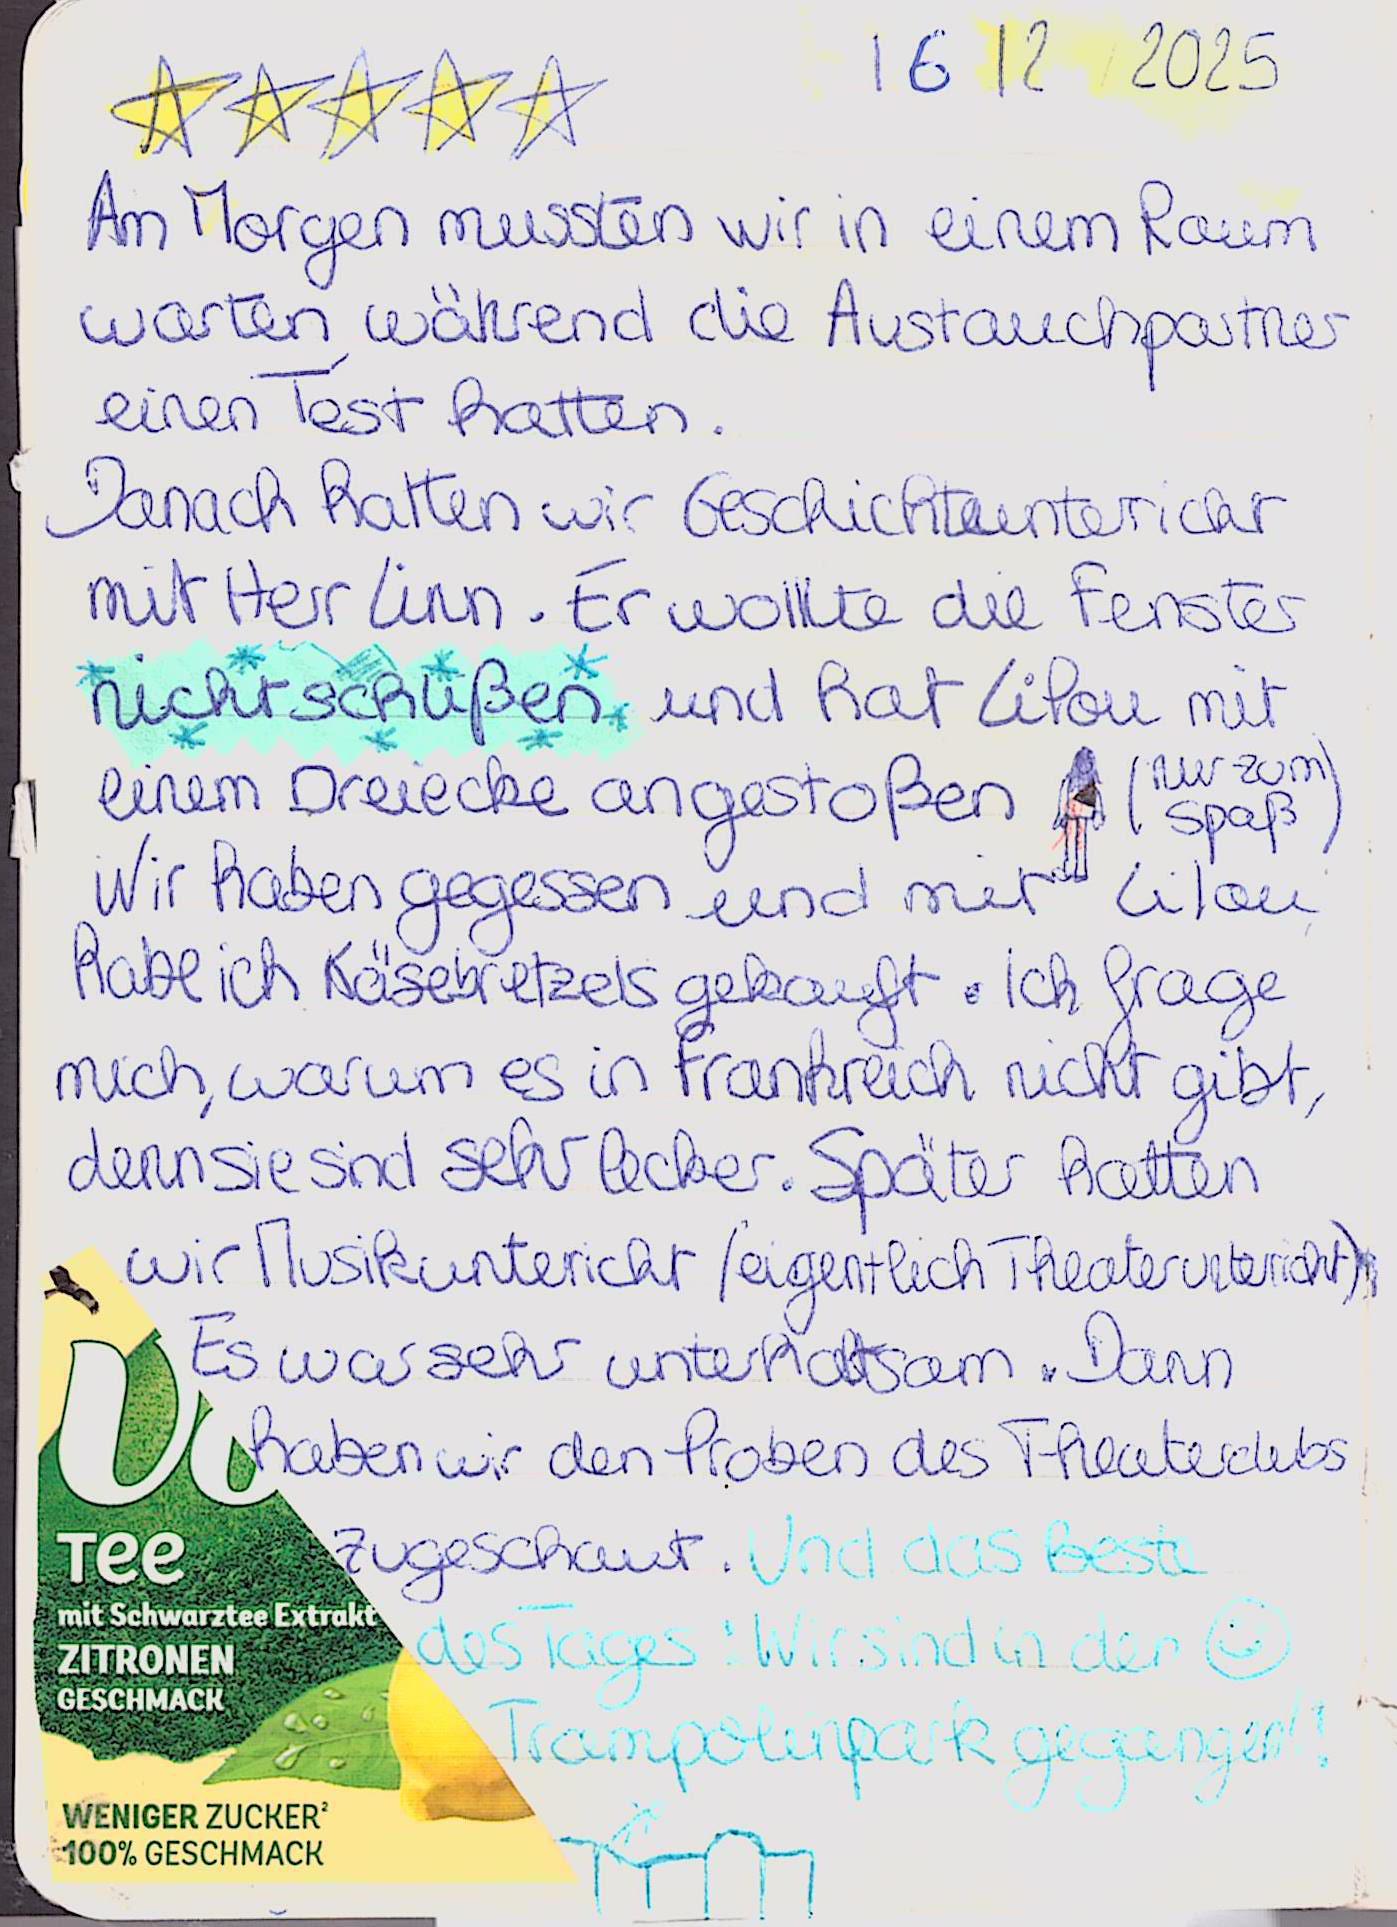 16 12 2025
Am Morgen mussten wir in einem Raum
warten, während die Austauchpartner
einen Test hatten.
Danach hatten wir Geschichteunterricht
mit Herr Linn. Er wollte die Fenster
nicht schlißen und hat Lilou mit
einem Dreiecke angestoßen (nur zum
Spaß)
Wir haben gegessen und mit Lilou
habe ich Käsebretzels gekauft. Ich frage
mich, warum es in Frankreich nicht gibt,
denn sie sind sehr lecker. Später hatten
wir Musikuntericht (eigentlich Theateruntericht)
Es war sehr unterhaltsam. Dann
haben wir den Proben des Theaterclubs
zugeschaut. Und das Beste
des Tages : Wir sind in der
Trampolinpark gegangen!!
TEE
mit Schwarztee Extrakt
ZITRONEN
GESCHMACK
WENIGER ZUCKER²
100% GESCHMACK